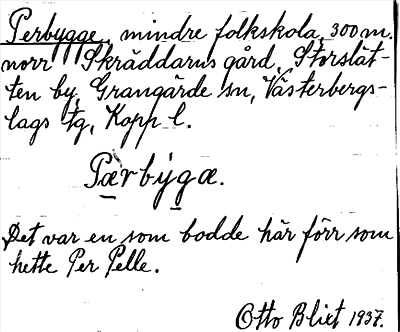 Perbygge, mindre folkskola, 300 m.
norr Skräddarns gård, Storslät-
ten by, Grangärde sn, Västerbergs-
lags tg, Kopp l.
Pærbýgæ.
Det var en som bodde här förr som
hette Per Pelle.
Otto Blixt 1937.